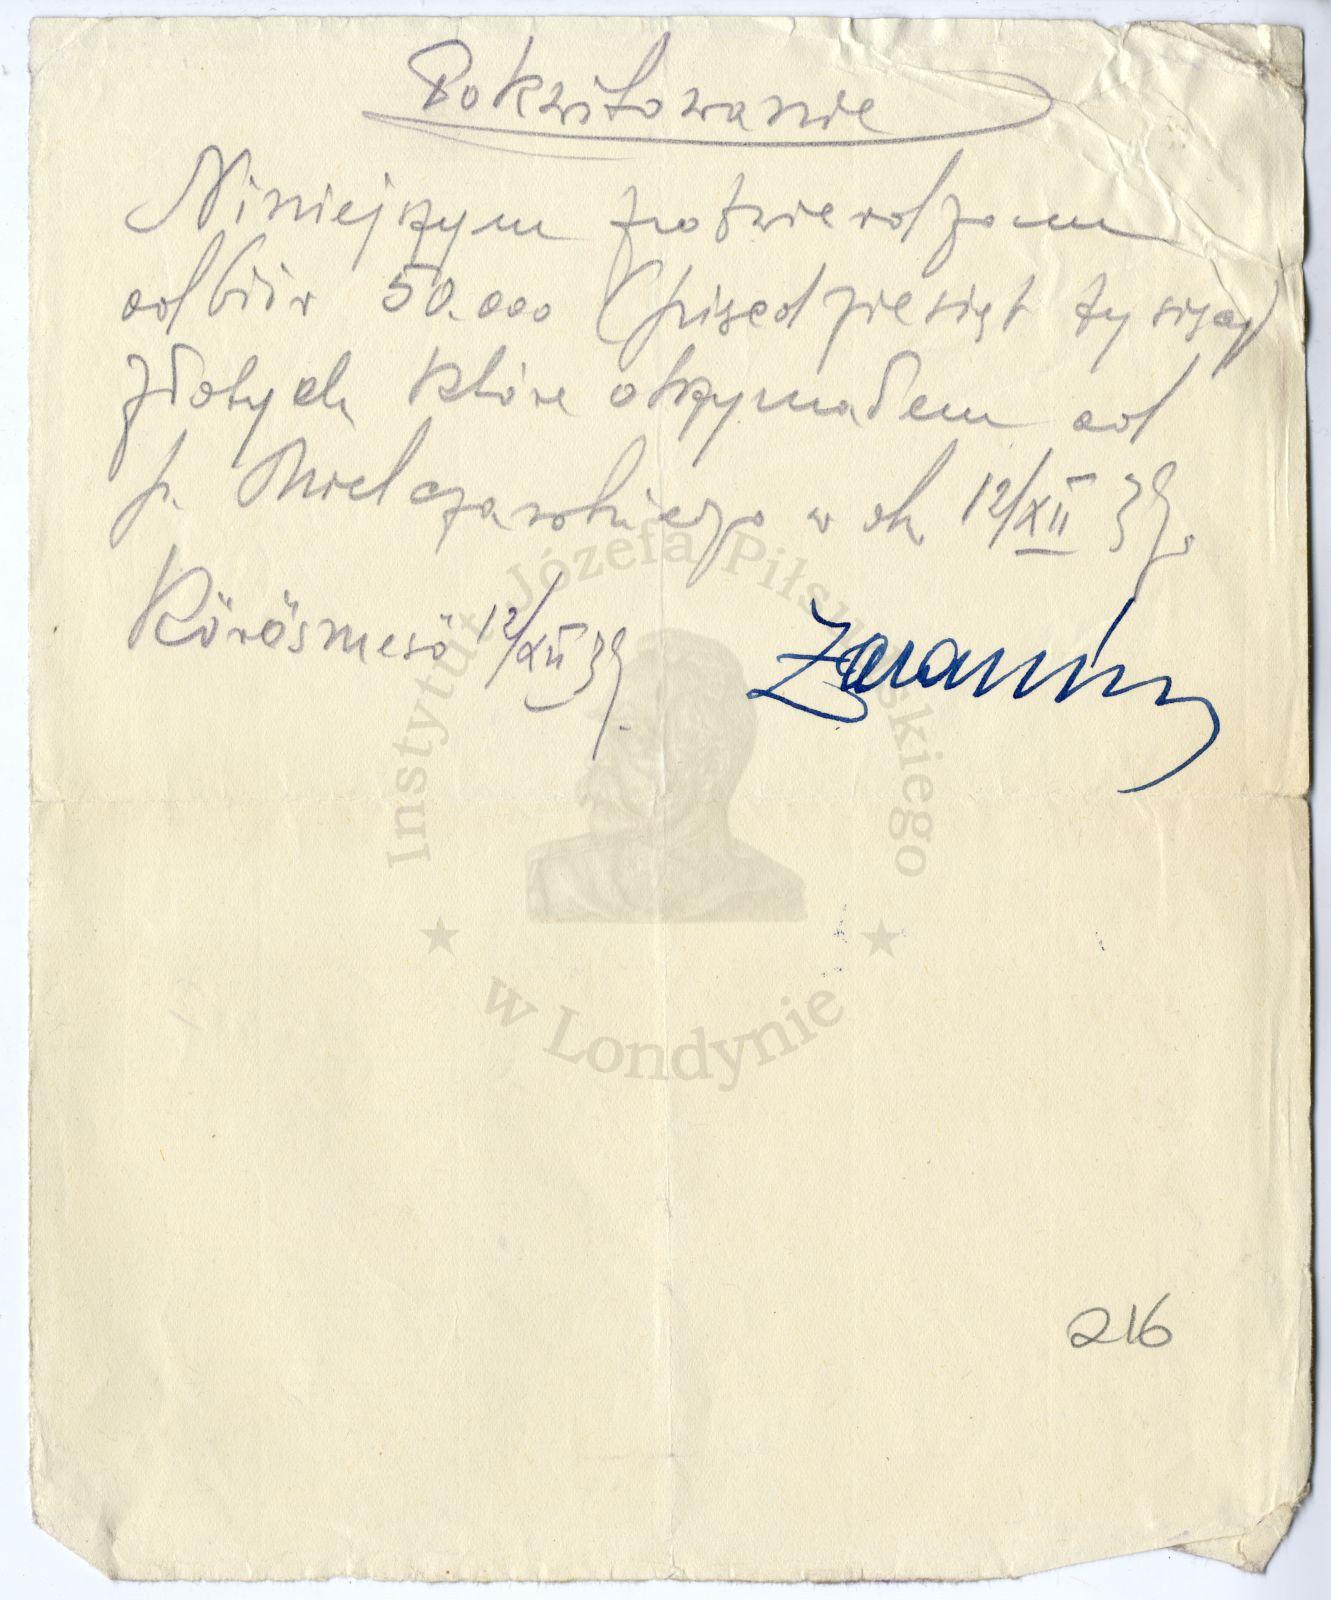 Pokwitowanie
Niniejszym potwierdzam
odbiór 50.000 (pięćdziesiąt tysięcy)
złotych które otrzymałem od
p. Mielczarskiego w dn. 12/XII 39.
Körösmesö 12/XII 39.
Instytut Józefa Piłsudskiego
w Londynie
216